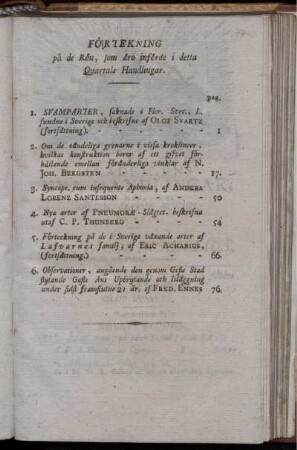 FÖRTEKNING
på de Rön, som äro införde i detta
Quartals Handlingar.
pag.
1. SVAMPARTER, saknade i Flor. Svec., L.
fundne i Sverige och beskrifne af OLOF SVARTZ
(fortsättning). - - - - 1
2. Om de oändeliga grenarne i vissa kroklinier,
hvilkas konstruktion beror af ett gifvet för-
hållande emellan föränderliga vinklar af N.
JOH. BERGSTEN - - - - 17.
3. Syncope, cum insequente Aphonia; af ANDERS
LORENZ SANTESSON - - - 50
4. Nya arter af PNEUMORÆ-Slägtet, beskrifna
utaf C. P. THUNBERG - - - 54
5. Förteckning på de i Sverige våxande arter af
Lafvarnes familj; af ERIC ACHARIUS,
(fortsättning.) - - - - 66.
6. Observationer, angående den genom Gefle Stad
flytande Gefle Åns Upbrytande och Isläggning
under sidst framflutne 21 år, af FRED. ENNES 76.